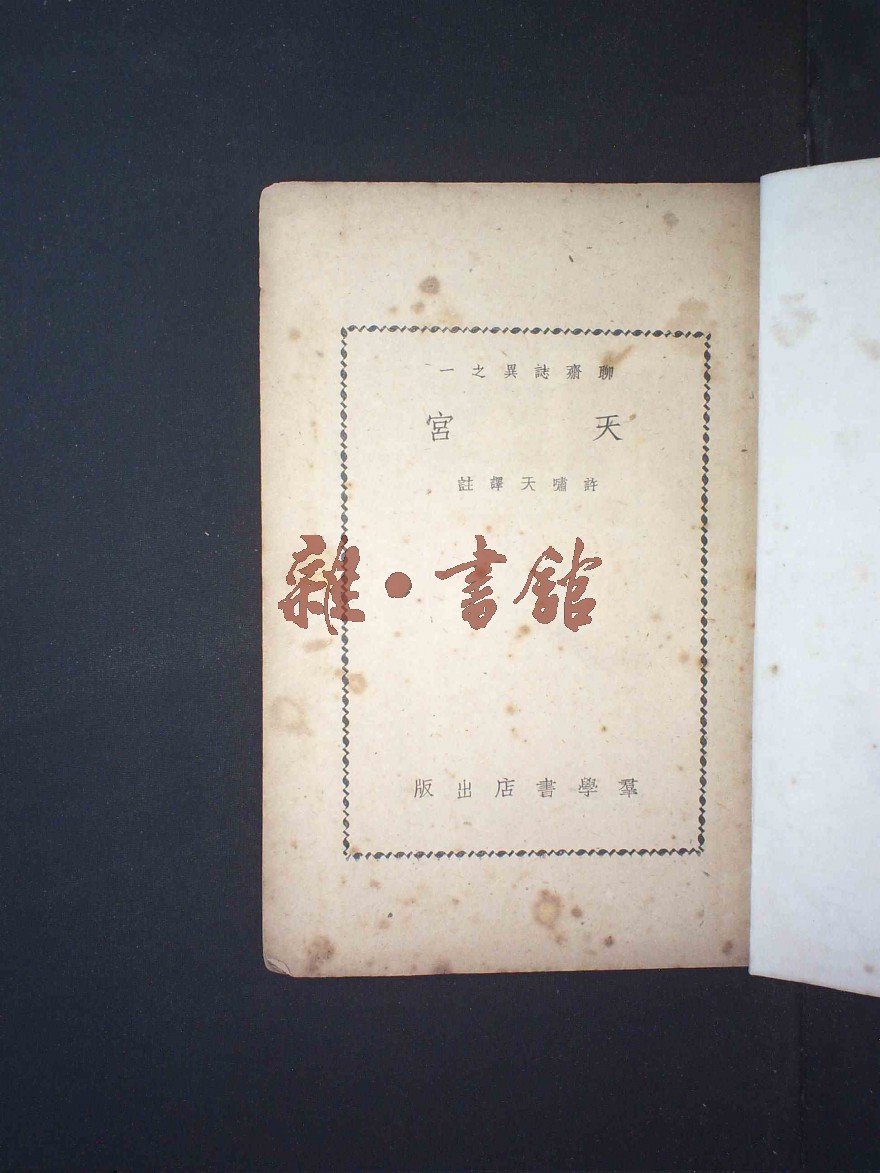 聊齋誌異之一
天宮
許嘯天譯註
雜·書館
羣學書店出版